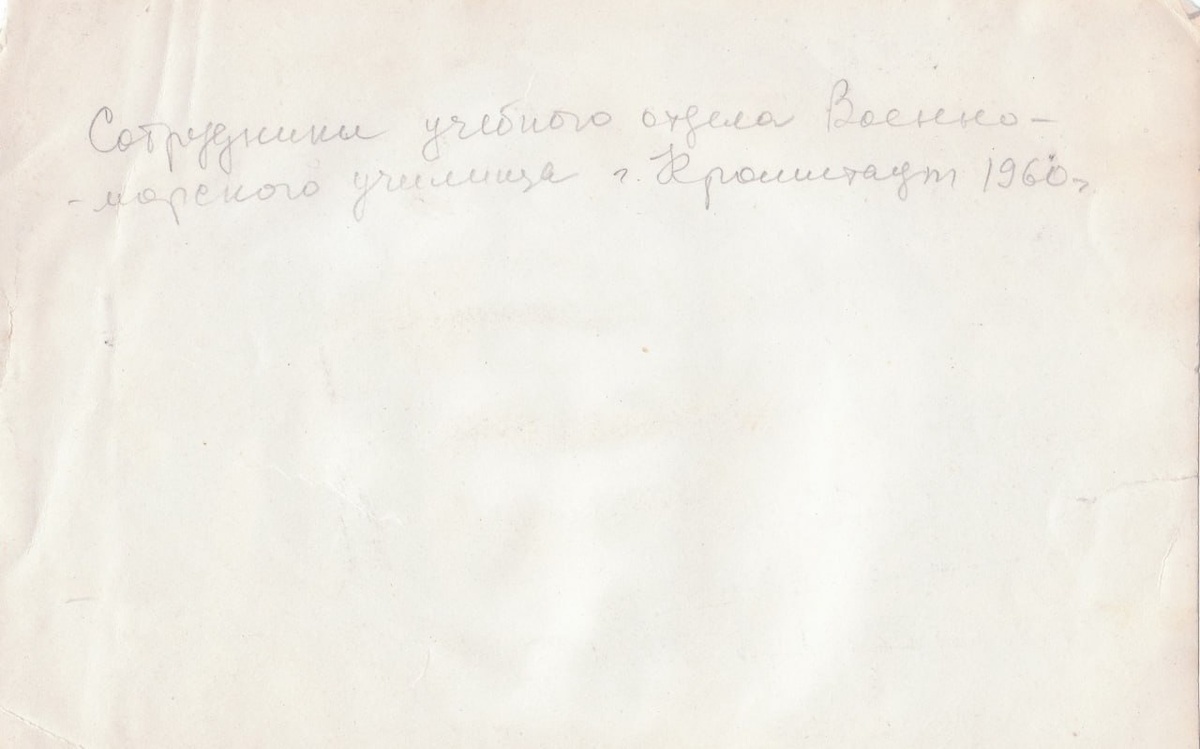 Сотрудники учебного отдела Военно-
-морского училища г. Кронштадт 1960г